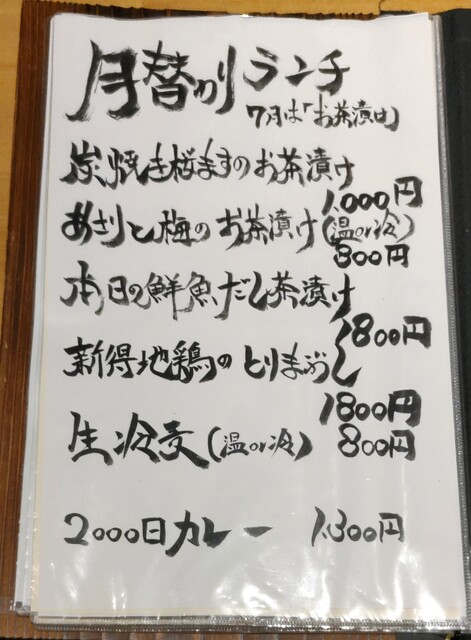 月替わりランチ
7月は「お茶漬け」
炭焼き桜ますのお茶漬け
1,000円
あさりと梅のお茶漬け(温or冷)
800円
本日の鮮魚だし茶漬け
1800円
新得地鶏のとりまぶし
1800円
生冷麦(温or冷) 800円
2000日カレー 1,300円